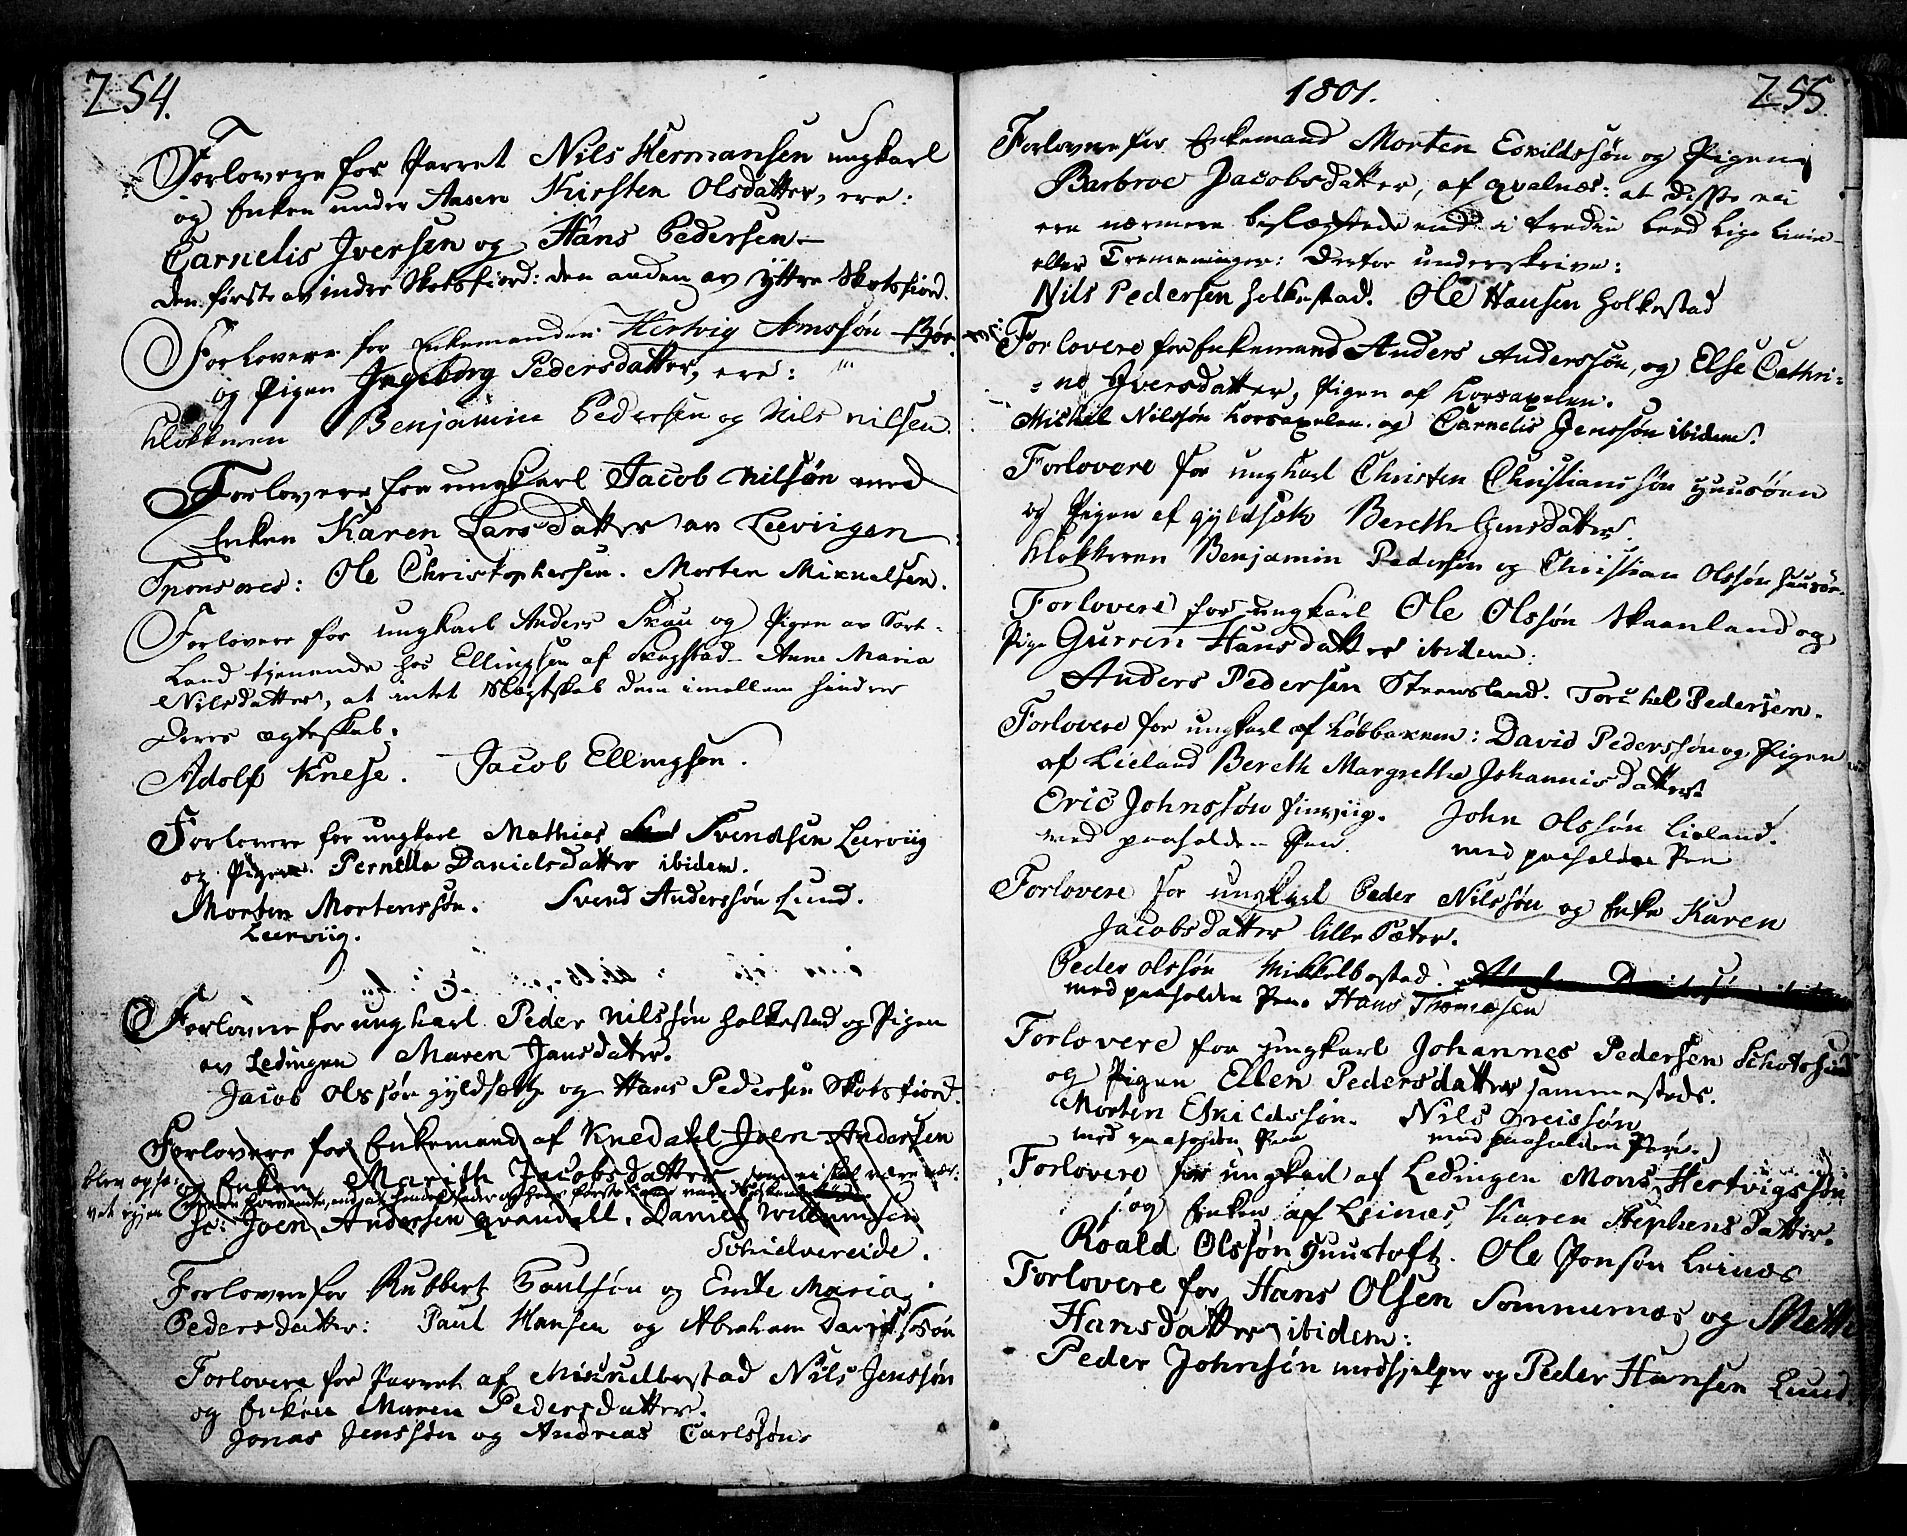 254.
Forlovere for Parret Nils Hermansen ungkarl
og Enken under Aasen Kirsten Olsdatter, ere:
Carnelis Iversen og Hans Pedersen
den første av indre Skotsfiord: den anden av Yttre Skotsfiord.
Forlovere for Enkemanden Hertvig Amssøn Bør
og Pigen Ingeborg Pedersdatter, ere:
klokkeren Benjamin Pedersen og Nils Nilsen.
Forlovere for ungkarl Jacob Nilsøn med
Enken Karen Larsdatter av Leeviigen
Sponsores: Ole Christophersen. Morten Mikkelsen.
Forlovere for ungkarl Anders Skau og Pigen av Sort-
Land tjenende hos Ellingsen af Skagstad Anne Maria
Nilsdatter, at intet Slægtskab dem imellem hindrer
deres ægteskab.
Adolf Knese. Jacob Ellingsen.
Forlovere for ungkarl Mathias Svendsen Leerviig
og Pigen Pernella Danielsdatter ibidem.
Morten Mortenssøn. Svend Anderssøn Lund.
Leerviig.
Forlovere for ungkarl Peder Nilssøn Holkestad og Pigen
av Ledingen Maren Jansdatter.
Jacob Olssøn gyldsætz og Hans Pedersen Skotsfiord.
Forlovere for Enkemand af Knedahl Joen Andersen
blev ophæ- og Enken Marith Jacobsdatter som ei skal være nær-
vet igien
sc: Joen Andersen Qvandall. Daniel Willumsen
Schielvereide.
Forlovere for Rubbert Poulsøn og Ente Maria
Pedersdatter: Paul Hansen og Abraham Davidssøn
Forlovere for Parret af Mikkelbostad Nils Jenssøn
og Enken Maren Pedersdatter.
Jonas Jenssøn og Andreas Carlssøn.
1801.
255.
Forlovere for Enkemand Morten Esvildssøn og Pigen
Barbroe Jacobsdatter, af Qvalnæs: at disse ei
ere nærmere beslægtede end i tredie Leed lige Linie
eller Tremeninger: derfor underskrive:
Nils Pedersen Holkestad. Ole Hansen Holkestad
Forlovere for Enkemand Anders Anderssøn, og Else Cathri-
ne Iversdatter, Pigen af Korsaxelen.
Michel Nilssøn Korsaxelen og Carnelis Jenssøn ibidem.
Forlovere for ungkarl Christen Christianssøn Huusøen
og Pigen af gyldsætz Bereth Jensdatter.
klokkeren Benjamin Pedersen og Christian Olssøn Huusøen
Forlovere for ungkarl Ole Olssøn Skaanland og
Pige Gurren Hansdatter ibidem:
Anders Pedersen Stransland. Torchel Pedersen.
Forlovere for ungkarl af Løbbaxem: David Pederssøn og Pigen
af Lieland Bereth Margrethe Johannisdatter
Eric Johnssøn Finviig. John Olssøn Lieland.
med paaholden Pen. med paaholden Pen
Forlovere for ungkarl Peder Nilssøn og Enke Karen
Jacobsdatter lille Pæter.
Peder Olssøn Mikkelbostad.
med paaholden Pen. Hans Thomæsen
Forlovere for ungkarl Johannes Pedersen Schotsfiord
og Pigen Ellen Pedersdatter sammesteds.
Morten Eskildssøn. Nils Greissøn
med paaholden Pen med paaholden Pen.
Forlovere for ungkarl af Ledingen Mons Hertvigssøn
og Enken af Leines Karen Stephensdatter.
Roald Olssøn Huustoft. Ole Jonsøn Leines
Forlovere for Hans Olsen Sommernæs og Mette
Hansdatter ibidem:
Peder Johnsen medhjelper og Peder Hansen Lund.